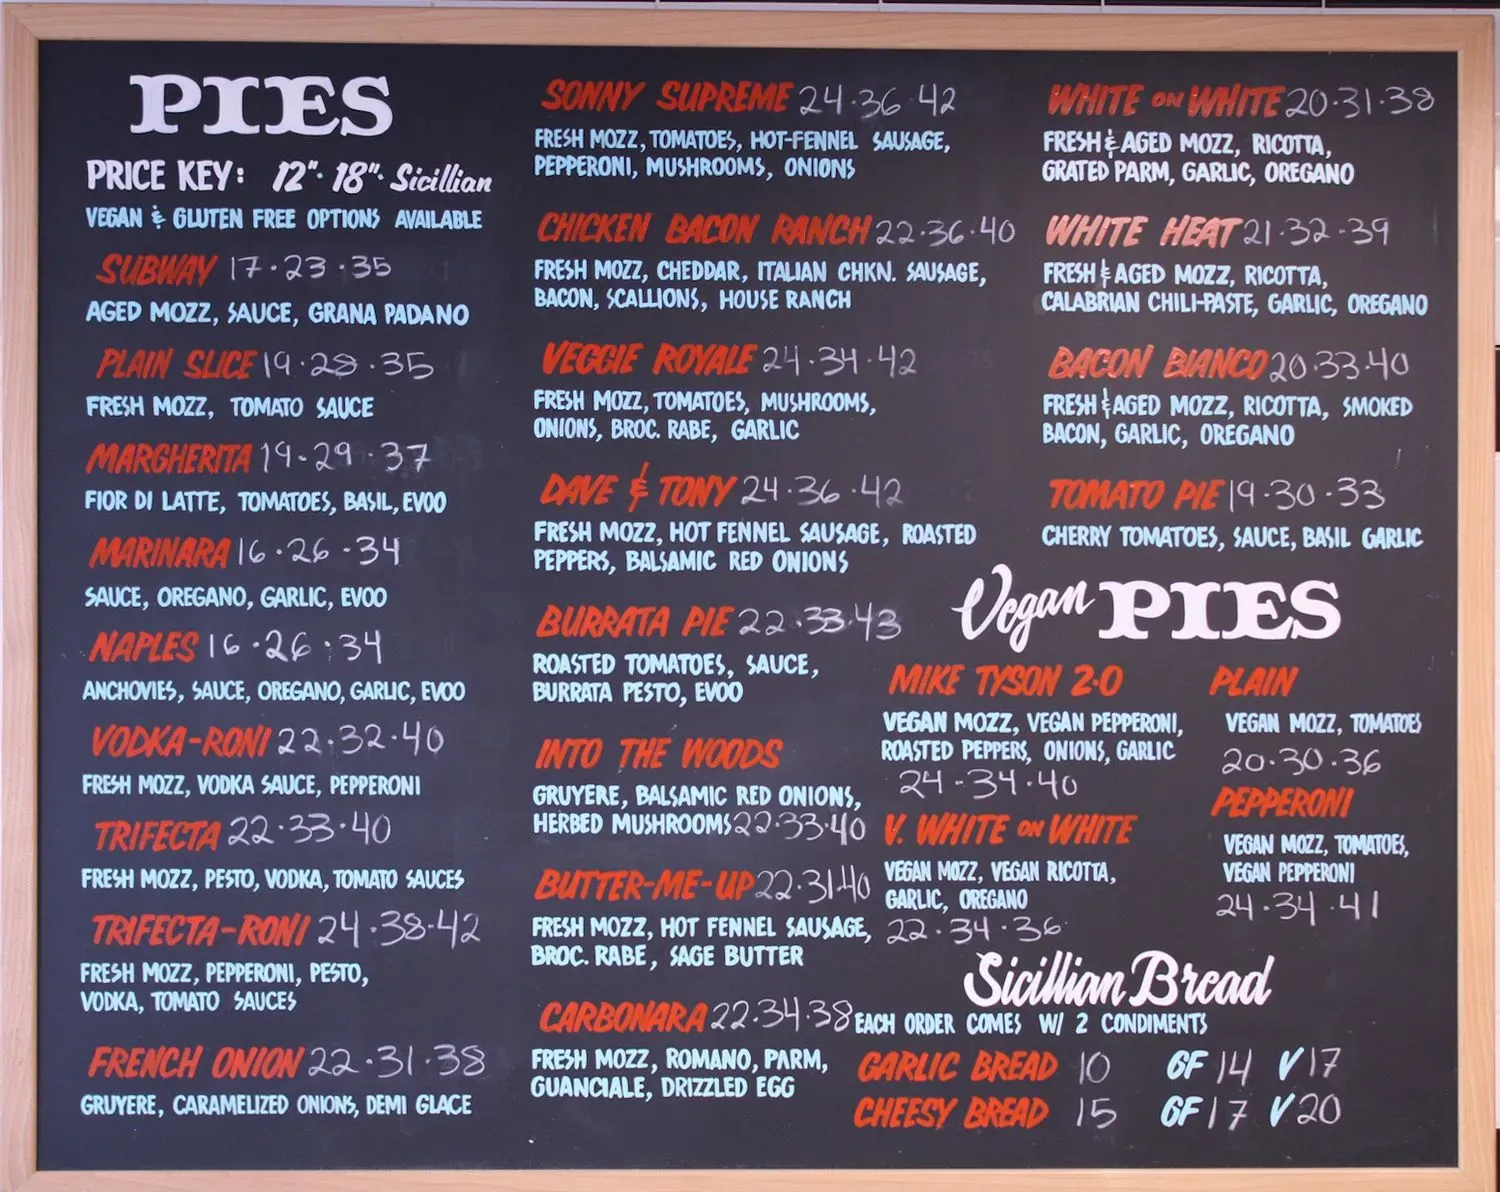 PIES
PRICE KEY: 12"· 18"· Sicillian
VEGAN & GLUTEN FREE OPTIONS AVAILABLE
SUBWAY 17·23·35
AGED MOZZ, SAUCE, GRANA PADANO
PLAIN SLICE 19·28·35
FRESH MOZZ, TOMATO SAUCE
MARGHERITA 19·29·37
FIOR DI LATTE, TOMATOES, BASIL, EVOO
MARINARA 16·26·34
SAUCE, OREGANO, GARLIC, EVOO
NAPLES 16·26·34
ANCHOVIES, SAUCE, OREGANO, GARLIC, EVOO
VODKA-RONI 22·32·40
FRESH MOZZ, VODKA SAUCE, PEPPERONI
TRIFECTA 22·33·40
FRESH MOZZ, PESTO, VODKA, TOMATO SAUCES
TRIFECTA-RONI 24·38·42
FRESH MOZZ, PEPPERONI, PESTO,
VODKA, TOMATO SAUCES
FRENCH ONION 22·31·38
GRUYERE, CARAMELIZED ONIONS, DEMI GLACE
SONNY SUPREME 24·36·42
FRESH MOZZ, TOMATOES, HOT-FENNEL SAUSAGE,
PEPPERONI, MUSHROOMS, ONIONS
CHICKEN BACON RANCH 22·36·40
FRESH MOZZ, CHEDDAR, ITALIAN CHKN. SAUSAGE,
BACON, SCALLIONS, HOUSE RANCH
VEGGIE ROYALE 24·34·42
FRESH MOZZ, TOMATOES, MUSHROOMS,
ONIONS, BROC. RABE, GARLIC
DAVE & TONY 24·36·42
FRESH MOZZ, HOT FENNEL SAUSAGE, ROASTED
PEPPERS, BALSAMIC RED ONIONS
BURRATA PIE 22·33·43
ROASTED TOMATOES, SAUCE,
BURRATA PESTO, EVOO
INTO THE WOODS
GRUYERE, BALSAMIC RED ONIONS,
HERBED MUSHROOMS 22·33·40
BUTTER-ME-UP 22·31·40
FRESH MOZZ, HOT FENNEL SAUSAGE,
BROC. RABE, SAGE BUTTER
CARBONARA 22·34·38
FRESH MOZZ, ROMANO, PARM,
GUANCIALE, DRIZZLED EGG
WHITE ON WHITE 20·31·38
FRESH & AGED MOZZ, RICOTTA,
GRATED PARM, GARLIC, OREGANO
WHITE HEAT 21·32·39
FRESH & AGED MOZZ, RICOTTA,
CALABRIAN CHILI-PASTE, GARLIC, OREGANO
BACON BIANCO 20·33·40
FRESH & AGED MOZZ, RICOTTA, SMOKED
BACON, GARLIC, OREGANO
TOMATO PIE 19·30·33
CHERRY TOMATOES, SAUCE, BASIL GARLIC
Vegan PIES
MIKE TYSON 2·0
VEGAN MOZZ, VEGAN PEPPERONI,
ROASTED PEPPERS, ONIONS, GARLIC
24·34·40
V. WHITE ON WHITE
VEGAN MOZZ, VEGAN RICOTTA,
GARLIC, OREGANO
22·34·36
PLAIN
VEGAN MOZZ, TOMATOES
20·30·36
PEPPERONI
VEGAN MOZZ, TOMATOES,
VEGAN PEPPERONI
24·34·41
Sicillian Bread
EACH ORDER COMES W/ 2 CONDIMENTS
GARLIC BREAD 10 GF 14 V 17
CHEESY BREAD 15 GF 17 V 20